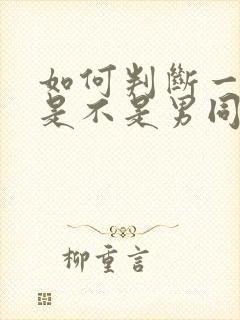 如何判斷一
是不是男同
柳重言